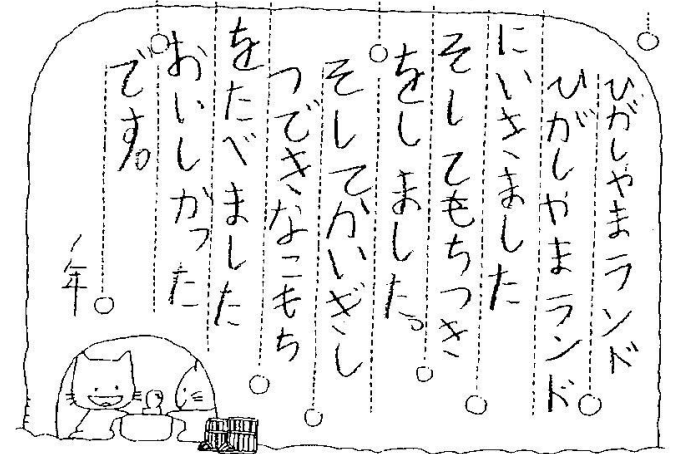 ひがしやまランド
ひがしやまランド
にいきました
そしてもちつき
をしました。
そしてかいぎし
つできなこもち
をたべました
おいしかった
です。
1年